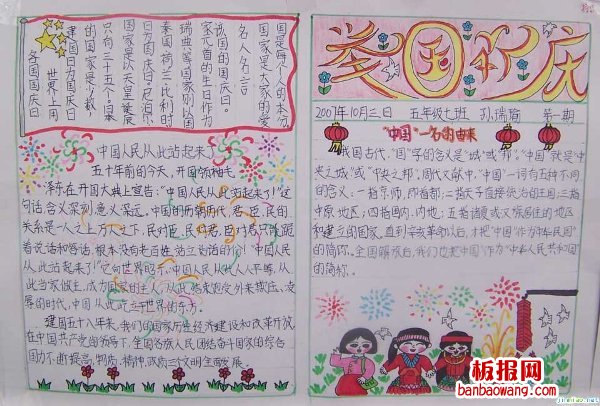 各国国庆日
世界上用
建国日为国庆日
的国家是少数,
只有三十五个。日本
国家是以天皇诞辰
日为国庆日。尼泊尔
泰国荷兰比利时
瑞典等国家则以国
家元首的生日作为
该国的国庆日。
名人名言
国家是大家的,爱
国是每个人的本分
中国人民从此站起来了
五十年前的今天,开国领袖毛
泽东在开国大典上宣告:“中国人民从此站起来了!”这
句话含义深刻,意义深远。中国的历朝历代,君、臣、民的
关系是一人之上万人之下,民对臣,民对君,臣对君只能跪
着说话和答话,根本没有老百姓站立说话的份!“中国人民
从此站起来了!”这向世界昭示:中国人民从此人人平等,从
此当家做主,成为国家的主人,从此结束饱受外来掠压、凌
辱的时代,中国从此屹立于世界的东方。
建国五十八年来,我们的国家历经经济建设和改革开放,
在中国共产党的领导下,全国各族人民团结奋斗国家的综合
国力不断提高,物质、精神、政治三个文明全面发展。
举国欢庆
2007年10月三日 五年级七班 孙瑞瑜 第一期
“中国”一名的由来
我国古代,“国”字的含义是“城”或“邦”,“中国”就是“中
央之城”或“中央之邦”;周代文献中,“中国”一词有五种不同
的含义:一指京师,即首都;二指天子直接统治的王国;三指
中原地区;四指国内、内地;五指诸夏或汉族居住的地区
和建立的国家。直到辛亥革命以后,才把“中国”作为“中华民国”
的简称。全国解放后,我们也把“中国”作为“中华人民共和国”
的简称。
板报网
banbaowang.com